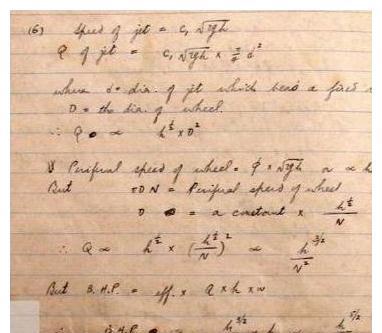 (6) Speed of jet = c, √2gh
Q of jet = c, √2gh × π/4 d²
where d = dia. of jet which bears a fixed
D = the dia. of wheel.
∴ Q ∝ h^½ × D²
Periferal speed of wheel = φ × √2gh or ∝ h
But πDN = Periferal speed of wheel
D = a constant × h^½/N
∴ Q ∝ h^½ × (h^½/N)² ∝ h^3/2/N²
But B.H.P. = eff. × Q × h × w
∴ B.H.P. ∝ h^3/2 h ∝ h^5/2